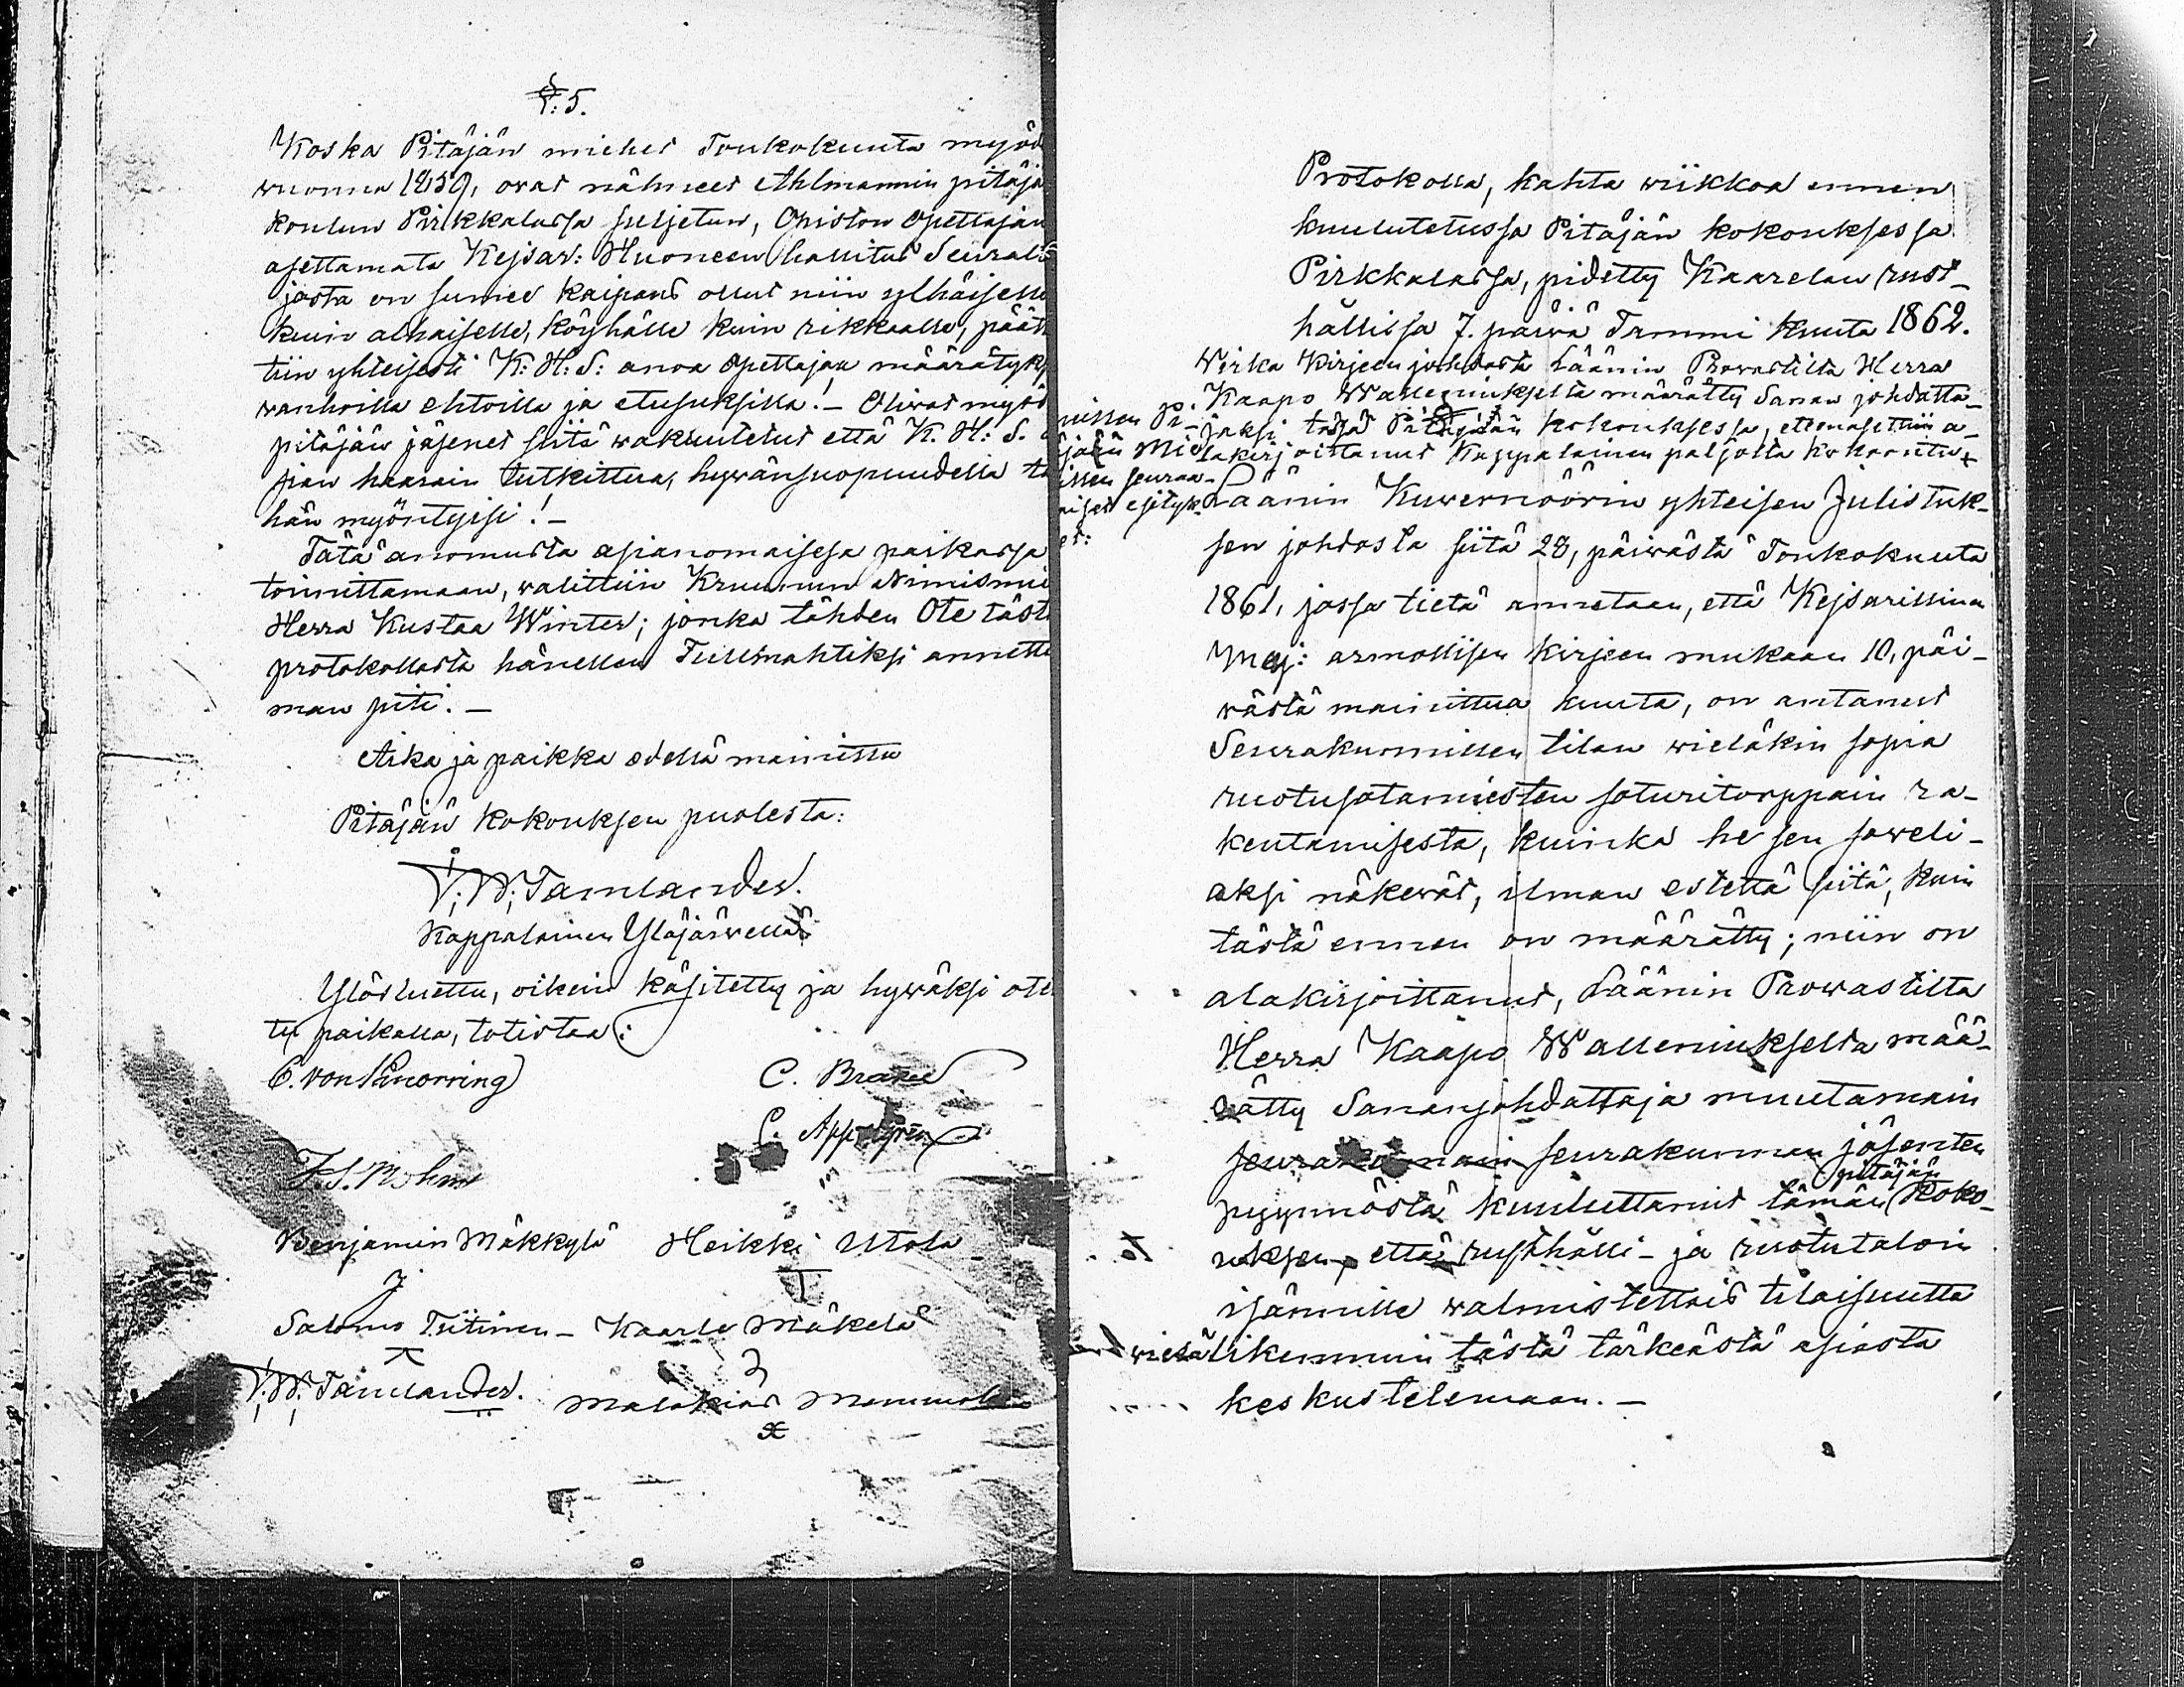 §: 5.
Koska Pitäjän miehet Toukokuuta myöd
wuonna 1859, owat nähneet Ahlmannin pitäjä
koulun Pirkkalassa suljetun, Opiston Opettajan
asettamata Kejsar: Huoneen hallitus Seuralt
josta on suuret kaipaus ollut niin ylhäiselle
kuin alhaiselle, köyhälle kuin rikkaalle, päät
tiin yhteisesti K: H: S: anoa Opettajan määrätyks
wanhoilla ehtoilla ja etusuksilla! - Oliwat myös
pitäjän jäsenet siitä wakuutetut että K. H: S. a
sian haarain tutkittua, hywänsuopuudella tä
hän myöntyisi! -
Tätä anomusta asianomaisesa paikassa
toimittamaan, walittiin Kruunun Nimismie
Herra Kustaa Winter; jonka tähden Ote täst
protokollasta hänellen Fullmahtiksi annetta
man piti. -
Aika ja paikka edellä mainittu
Pitäjän Kokouksen puolesta:
F: W: Tamlander.
Kappalainen Ylöjärwellä
Ylösluettu, oikein käsitetty ja hywäksi ote
tu paikalla, totistaa:
C. von Knorring
C. Brand
C. Appelgren
F. S. Molin
Benjamin Mäkkylä Heikki Utola
Salomo Tiitinen - Kaarle Mäkelä
F: W: Tamlander. Malakias Mommola
Protokolla, kahta wiikkoa ennen
kuulutetussa Pitäjän kokouksessa
Pirkkalassa, pidetty Kaarelan rust-
hållissa 7. päiwä Tammi kuuta 1862.
Wirka Kirjeen johdosta Läänin Prowastilta Herra
Kaapo Walleniukselta määrätty Sanan johdatta-
jaksi täsä Pitäjään kokouksessa, etemasettiin a-
lakirjoittanut Kappalainen paljolta kokoontu-
nitten Pi-
täjään Mie
itten seuraa-
wiset esityk-
et:
Läänin Kuwernöörin yhteisen Julistuk-
sen johdosta siitä 28, päiwästä Toukokuuta
1861, jossa tietä annetaan, että Kejsarillinen
Maj: armollisen kirjeen mukaan 10, päi-
wästä mainittua kuuta, on antanut
Seurakunnillen tilan wieläkin sopia
ruotusotamiesten soturitorppain ra-
kentamisesta, kuinka he sen soweli-
aksi näkewät, ilman estettä siitä, kuin
tästä ennen on määrätty; niin on
alakirjoittanut, Läänin Prowastilta
Herra Kaapo Walleniukselta mää-
rätty Sananjohdattaja muutamain
seurakunnain seurakunnan jäsenten
pyynnöstä kuuluttanut tämän pitäjän Koko-
uksen, että rusthålli- ja ruotutaloin
isännille walmistettais tilaisuutta
wielä likemmin tästä tärkeästä asiasta
keskustelemaan. -